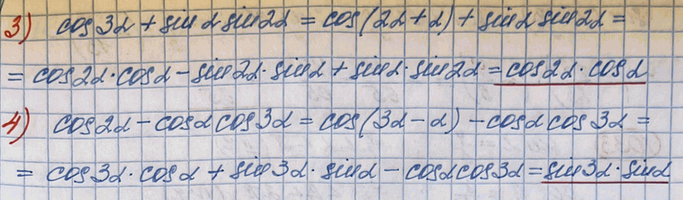 3) cos3α + sinα sin2α = cos(2α+α) + sinα sin2α =
= cos2α·cosα − sin2α·sinα + sinα·sin2α = cos2α·cosα
4) cos2α − cosα cos3α = cos(3α−α) − cosα cos3α =
= cos3α·cosα + sin3α·sinα − cosα cos3α = sin3α·sinα